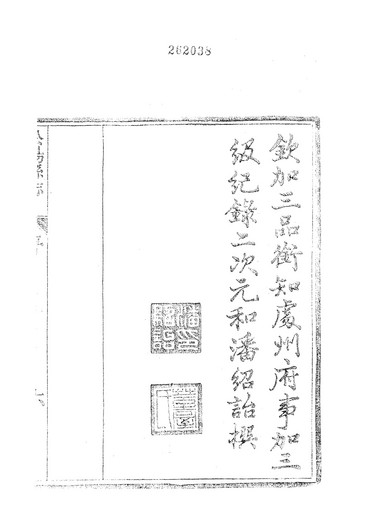 262038
欽加三品銜知處州府事加三
級紀錄二次元和潘紹詒撰